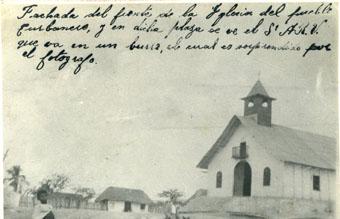 Fachada del frente de la Yglesia del pueblo
Turbanero, y en dicha plaza se ve el Sr A.R.V.
que va en un burro, el cual es sorprendido por
el fotógrafo.